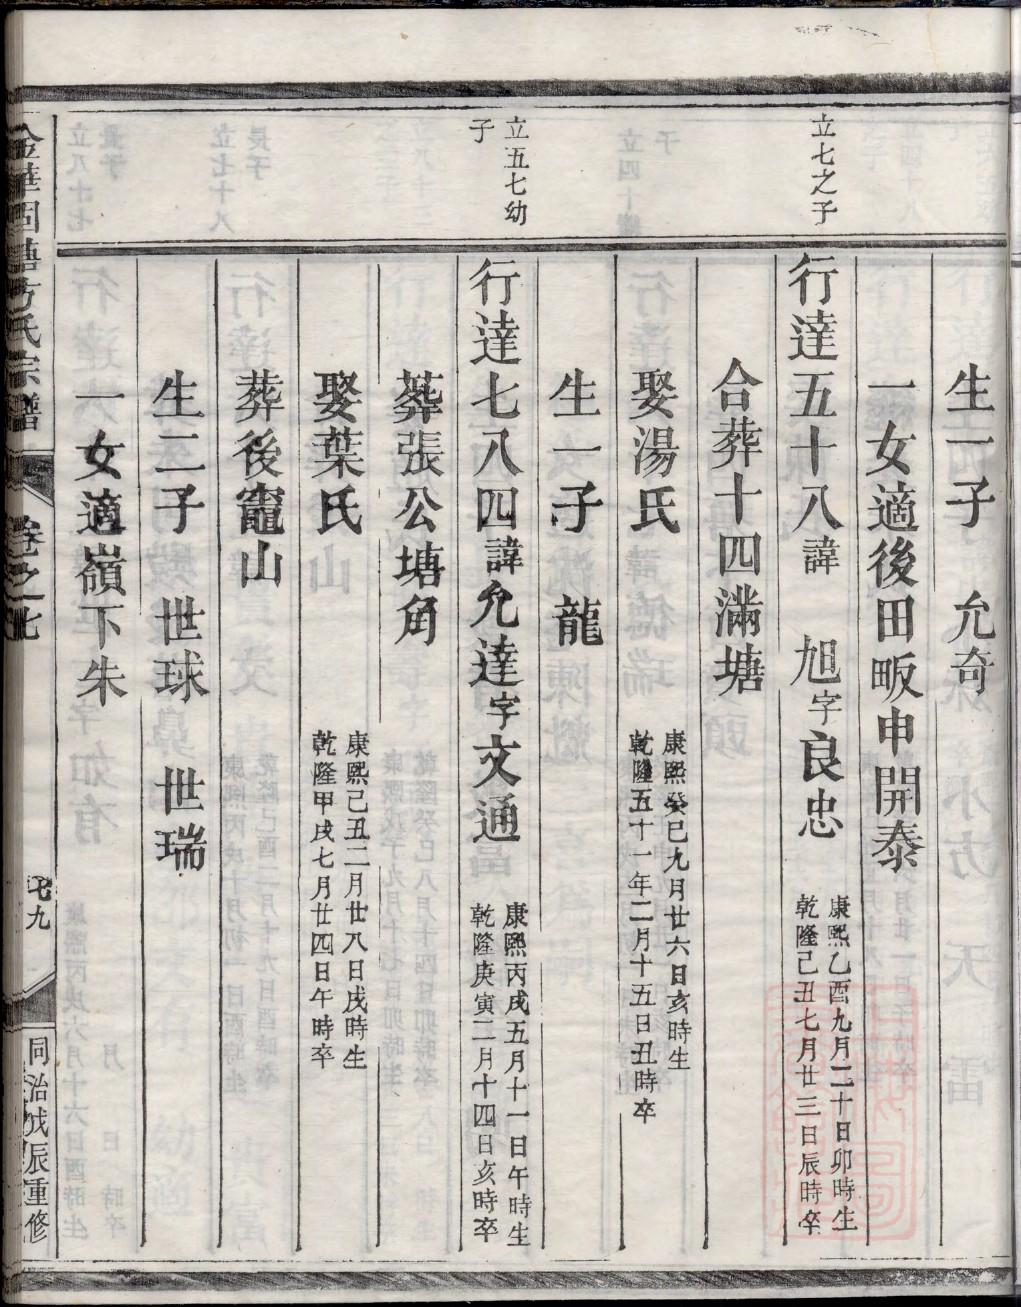 生一子　允奇
一女適後田畈申開泰
立七之子
行達五十八諱　旭字良忠
康熙乙酉九月二十日卯時生
乾隆己丑七月廿三日辰時卒
合葬十四滿塘
娶湯氏
康熙癸巳九月廿六日亥時生
乾隆五十一年二月十五日丑時卒
生一子　龍
立五七幼
子
行達七八四諱允達字文通
康熙丙戌五月十一日午時生
乾隆庚寅二月十四日亥時卒
葬張公塘角
娶葉氏
康熙己丑二月廿八日戌時生
乾隆甲戌七月廿四日午時卒
葬後竈山
生二子　世球　世瑞
一女適嶺下朱
金華固塘方氏宗譜
卷之七
九
同治戊辰重修